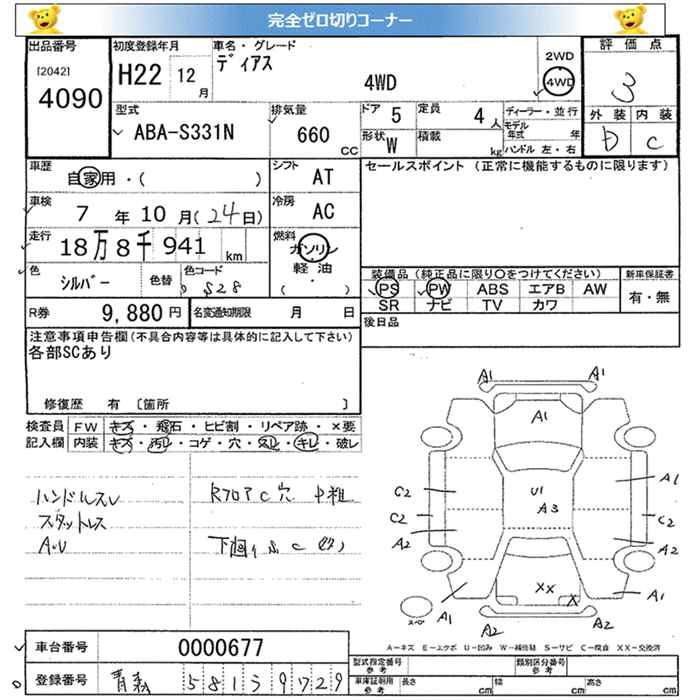 完全ゼロ切りコーナー
出品番号 初度登録年月 車名・グレード 評価点
[2042]
4090
H22 12 月 ディアス 4WD 2WD 4WD 3
型式 排気量 ドア 定員 ディーラー・並行 外装 内装
ABA-S331N 660 CC 5 4 人 モデル年式 年 D C
形状 W 積載 kg ハンドル 左・右
車歴 シフト セールスポイント (正常に機能するものに限ります)
自家用・( ) AT
車検 冷房
7 年 10 月(24日) AC
走行 燃料
18万8千941 km ガソリン
軽油
( )
色 シルバー 色替 色コード S28
装備品(純正品に限り〇をつけてください) 新車保証書
PS PW ABS エアB AW 有・無
SR ナビ TV カワ
R券 9,880 円 名変通知期限 月 日 後日品
注意事項申告欄(不具合内容等は具体的に記入して下さい)
各部SCあり
修復歴 有 [箇所 ]
検査員 FW キズ・飛石・ヒビ割・リペア跡・×要
記入欄 内装 キズ・汚し・コゲ・穴・スレ・キレ・破レ
ハンドルスレ Rフロアc穴
スタットレス
下回りSC
A1 A1
A1
C2 U1 A1
A3
C2 C2
A2 A2
XX X
A1 A1
スペア A2 A2
A-キズ E-エクボ U-凹み W-補修跡 S-サビ C-腐食 XX-交換済
車台番号 0000677
登録番号 青森 58139729
型式指定番号 参考 類別区分番号 参考
車庫証明用 参考 長さ cm 幅 cm 高さ cm